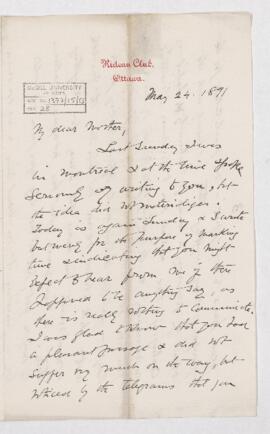 Rideau Club,
Ottawa.
McGILL UNIVERSITY
ARCHIVES
ACC. NO. 1377/15/
REF. 28
May 24. 1891
My dear Mother,
Last Sunday I was
in Montreal & at the time spoke
seriously of writing to you, but
the idea did not materialize.
Today is again Sunday & I write
but merely for the purpose of marking
time & indicating that you might
expect to hear from me if there
happened to be anything to say as
there is really nothing to communicate.
I was glad to know that you had
a pleasant passage & did not
suffer very much on the way, but
noticed by the telegrams that you